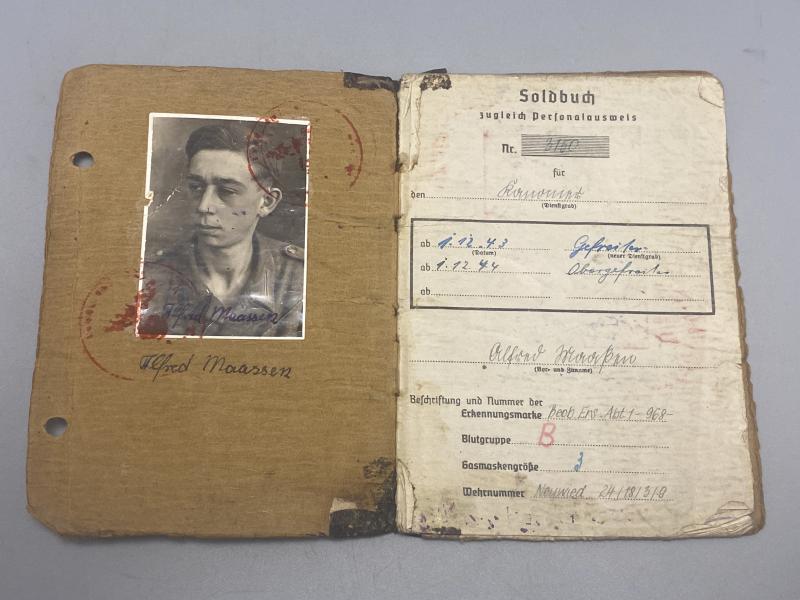 Alfred Maassen
Alfred Maassen
Soldbuch
zugleich Personalausweis
Nr. 3160
für
den Kanonier
(Dienstgrad)
ab 1.12.43 Gefreiter
(Datum) (neuer Dienstgrad)
ab 1.12.44 Obergefreiter
ab
Alfred Maaßen
(Vor- und Zuname)
Beschriftung und Nummer der
Erkennungsmarke Beob. Ers. Abt 1 -968-
Blutgruppe B
Gasmaskengröße 3
Wehrnummer Neuwied 24/18/3/8